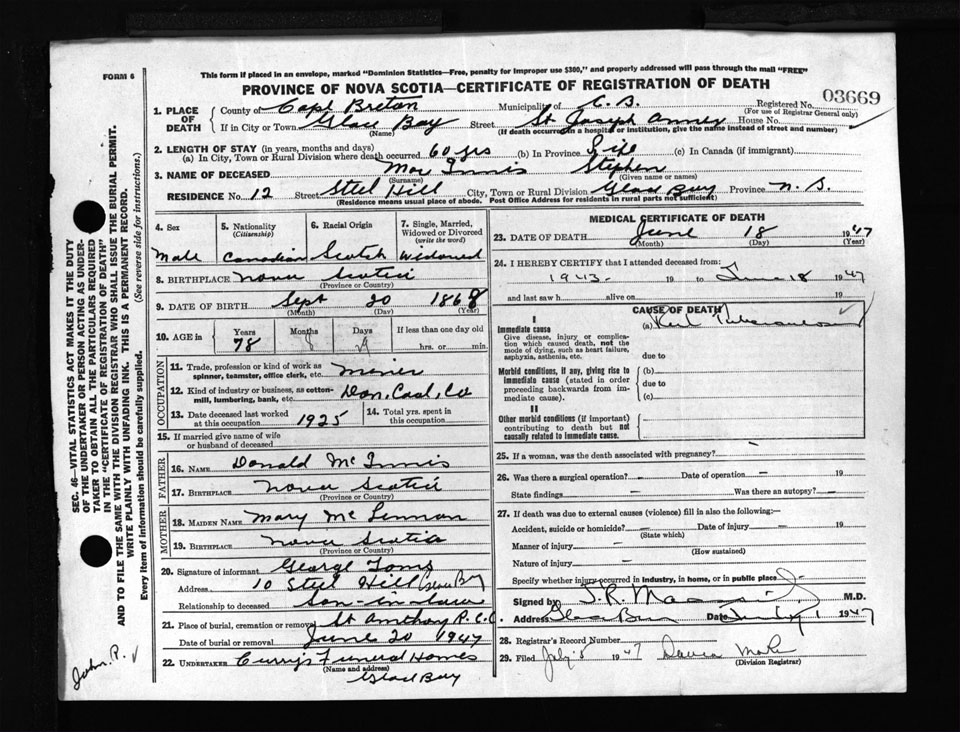 FORM 6
This form if placed in an envelope, marked "Dominion Statistics—Free, penalty for improper use $300," and properly addressed will pass through the mail "FREE"
PROVINCE OF NOVA SCOTIA—CERTIFICATE OF REGISTRATION OF DEATH
03669
1. PLACE OF DEATH County of Cape Breton Municipality of C. B. Registered No.
(For use of Registrar General only)
If in City or Town Glace Bay Street St Joseph Annex House No.
(Name) (If death occurred in a hospital or institution, give the name instead of street and number)
2. LENGTH OF STAY (in years, months and days)
(a) In City, Town or Rural Division where death occurred 60 yrs (b) In Province Life (c) In Canada (if immigrant)
3. NAME OF DECEASED Mac Innis Stephen
(Surname) (Given name or names)
RESIDENCE No. 12 Street Steel Hill City, Town or Rural Division Glace Bay Province N. S.
(Residence means usual place of abode. Post Office Address for residents in rural parts not sufficient)
4. Sex Male
5. Nationality (Citizenship) Canadian
6. Racial Origin Scotch
7. Single, Married, Widowed or Divorced (write the word) Widowed
8. BIRTHPLACE Nova Scotia
(Province or Country)
9. DATE OF BIRTH Sept 20 1868
(Month) (Day) (Year)
10. AGE in Years 78 Months 8 Days If less than one day old
hrs. or min.
OCCUPATION
11. Trade, profession or kind of work as spinner, teamster, office clerk, etc. Miner
12. Kind of industry or business, as cotton-mill, lumbering, bank, etc. Dom. Coal, Co
13. Date deceased last worked at this occupation 1925
14. Total yrs. spent in this occupation
15. If married give name of wife or husband of deceased
FATHER
16. NAME Donald McInnis
17. BIRTHPLACE Nova Scotia
(Province or Country)
MOTHER
18. MAIDEN NAME Mary McLennan
19. BIRTHPLACE Nova Scotia
(Province or Country)
20. Signature of informant George Toms
Address 10 Steel Hill Glace Bay
Relationship to deceased Son-in-law
21. Place of burial, cremation or removal St Anthony R.C.C.
Date of burial or removal June 20 1947
22. UNDERTAKER Curry's Funeral Homes
(Name and address)
Glace Bay
MEDICAL CERTIFICATE OF DEATH
23. DATE OF DEATH June 18 1947
(Month) (Day) (Year)
24. I HEREBY CERTIFY that I attended deceased from:
1943 19 to June 18 1947
and last saw h alive on 19
CAUSE OF DEATH
I
Immediate cause
Give disease, injury or complication which caused death, not the mode of dying, such as heart failure, asphyxia, asthenia, etc.
(a)
due to
Morbid conditions, if any, giving rise to immediate cause (stated in order proceeding backwards from immediate cause).
(b)
due to
(c)
II
Other morbid conditions (if important) contributing to death but not causally related to immediate cause.
25. If a woman, was the death associated with pregnancy?
26. Was there a surgical operation? — Date of operation — 19
State findings — Was there an autopsy? —
27. If death was due to external causes (violence) fill in also the following:—
Accident, suicide or homicide? — Date of injury — 19
(State which)
Manner of injury —
(How sustained)
Nature of injury —
Specify whether injury occurred in industry, in home, or in public place
Signed by M.D.
Address Glace Bay Date 1947
28. Registrar's Record Number
29. Filed July 8 1947
(Division Registrar)
SEC. 46—VITAL STATISTICS ACT MAKES IT THE DUTY
OF THE UNDERTAKER OR PERSON ACTING AS UNDER-
TAKER TO OBTAIN ALL THE PARTICULARS REQUIRED
IN THE "CERTIFICATE OF REGISTRATION OF DEATH"
AND TO FILE THE SAME WITH THE DIVISION REGISTRAR WHO SHALL ISSUE THE BURIAL PERMIT.
WRITE PLAINLY WITH UNFADING INK. THIS IS A PERMANENT RECORD.
Every item of information should be carefully supplied. (See reverse side for instructions.)
John R.